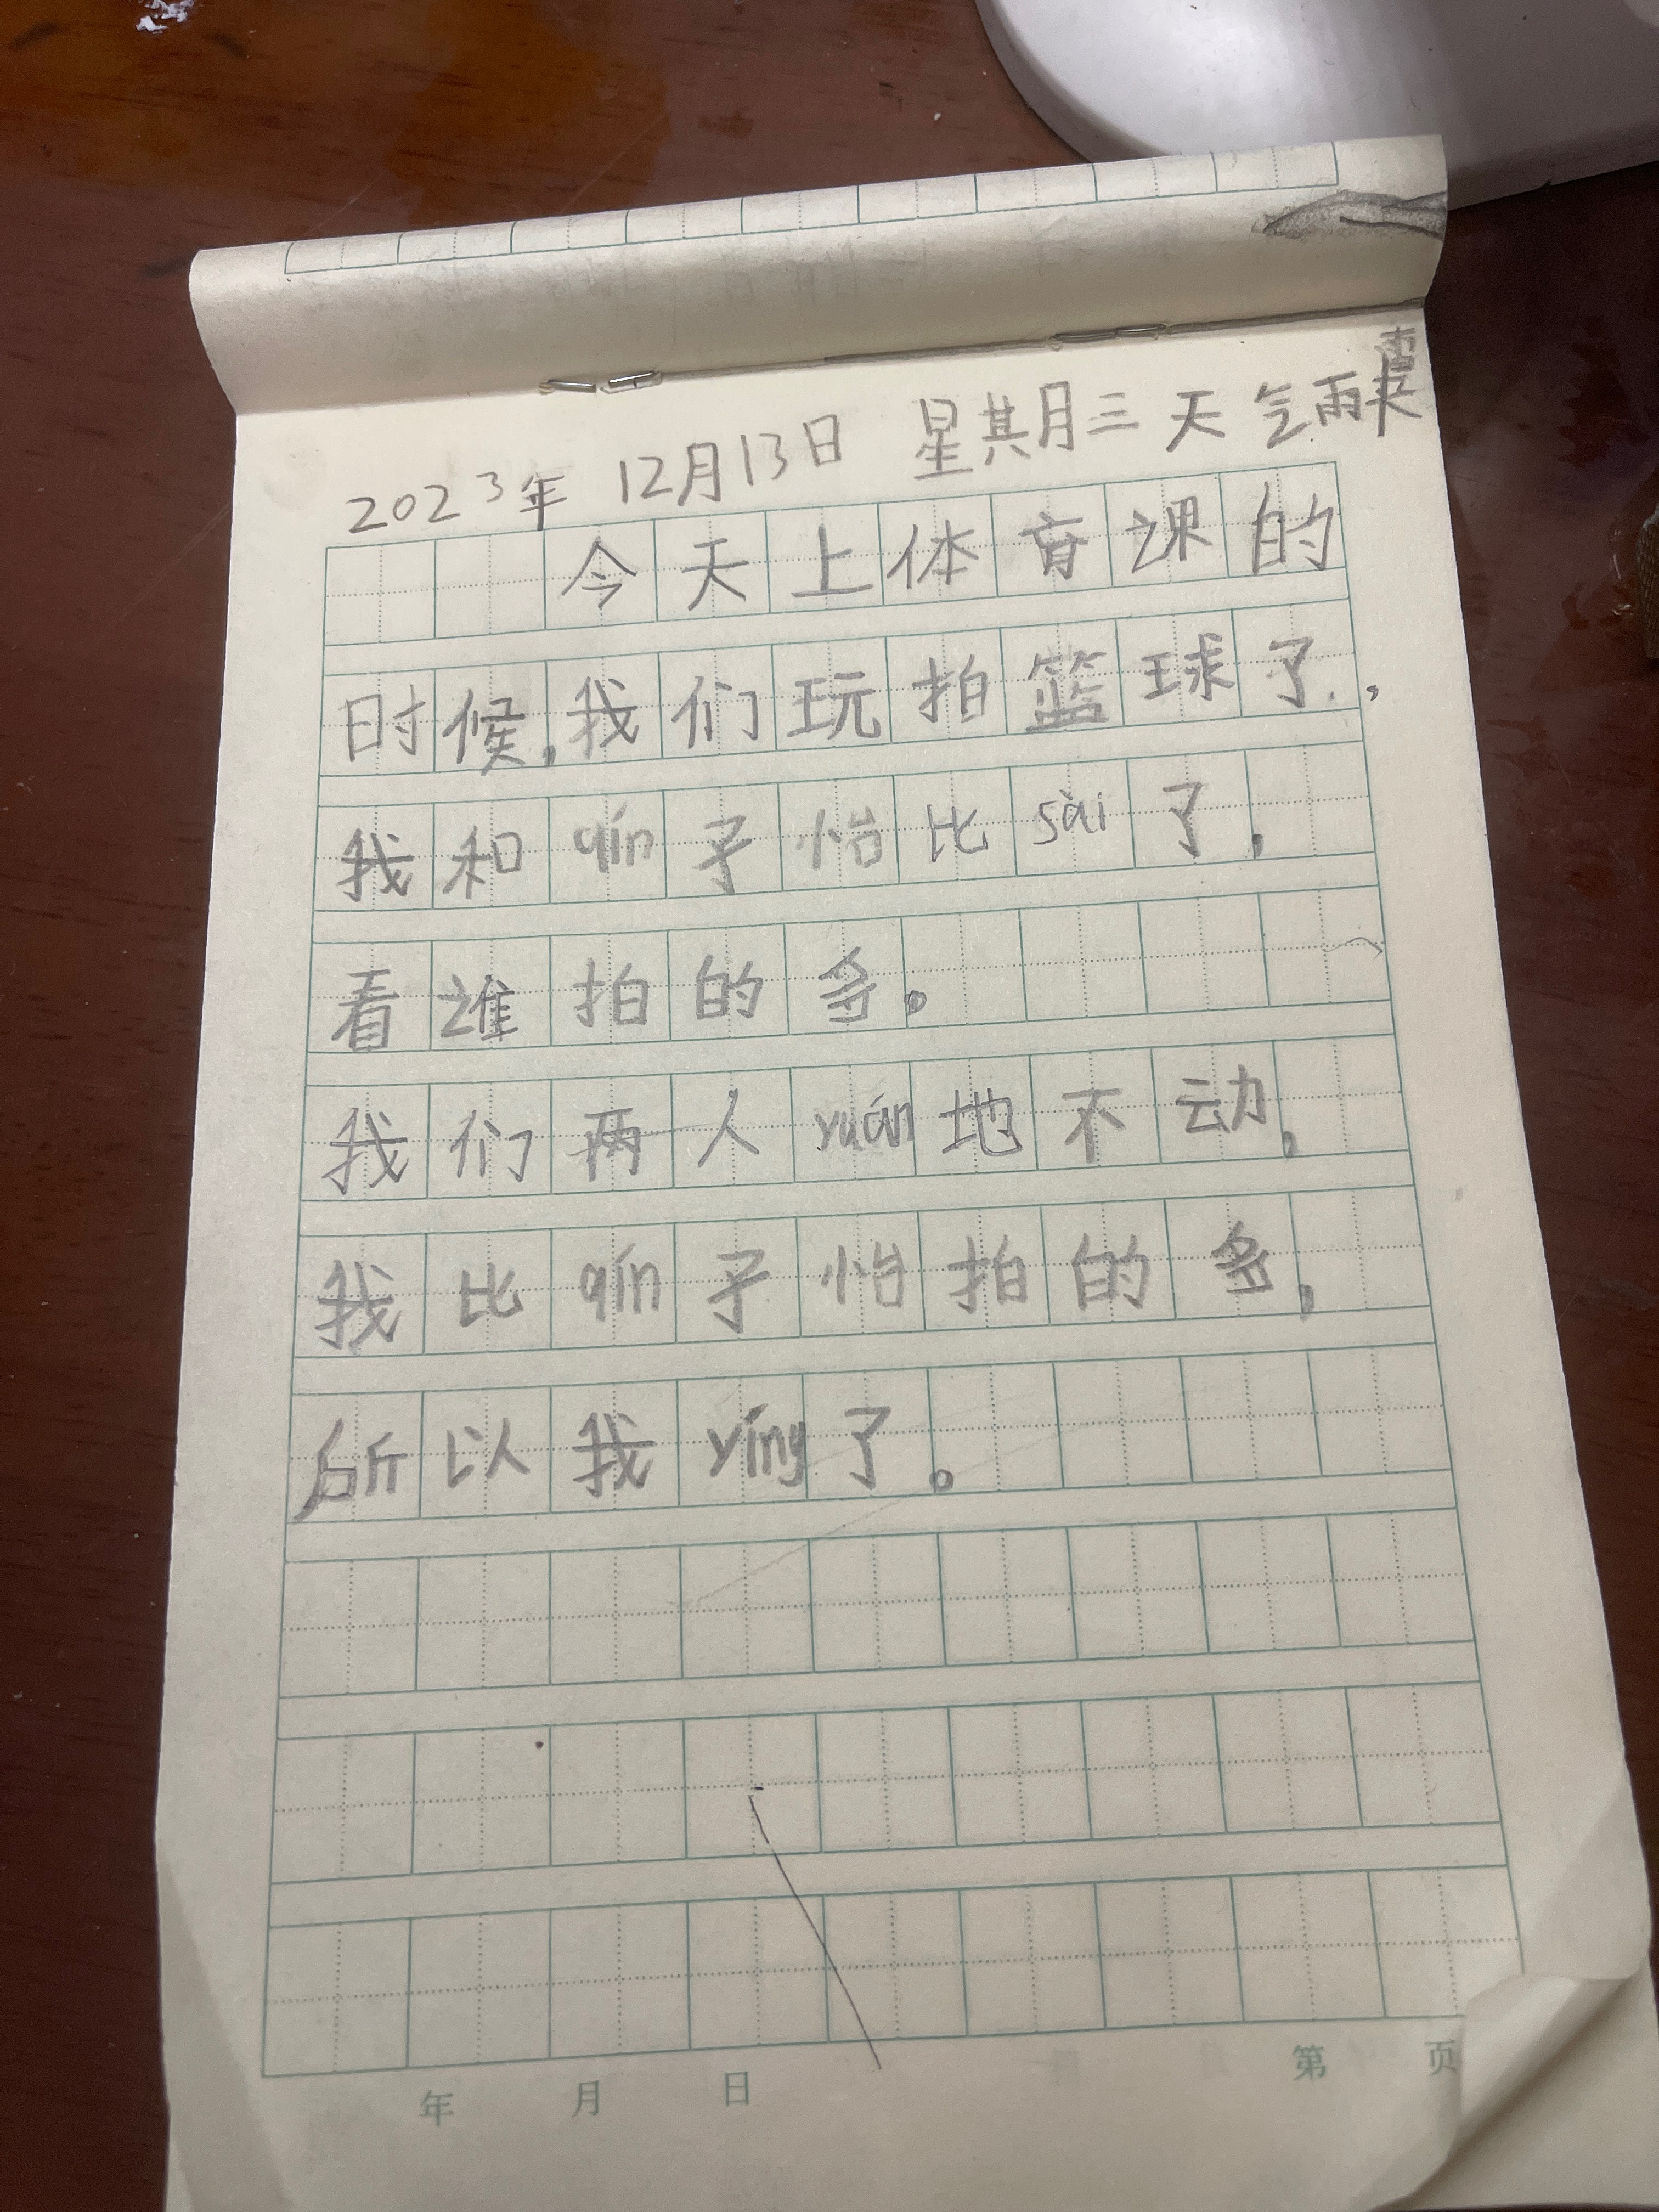 2023年 12月13日 星期三 天气雨夹
今天上体育课的
时候,我们玩拍篮球了,
我和qín子怡比sài了,
看谁拍的多。
我们两人yuán地不动,
我比qín子怡拍的多,
所以我yíng了。
年 月 日 第 页